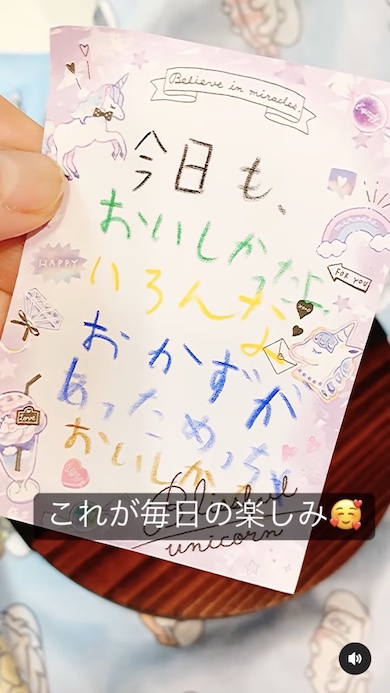 Believe in miracles.
今日も、
おいしかったよ。
HAPPY
FOR YOU
いろんな
おかずが
あったよ
Love
おいしかっ
これが毎日の楽しみ🥰
Blissful
unicorn